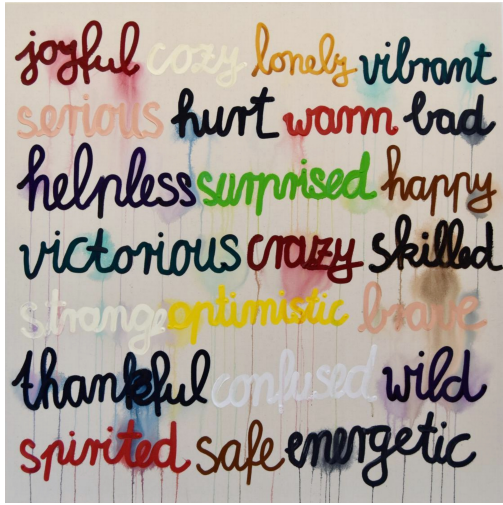 joyful cozy lonely vibrant
serious hurt warm bad
helpless surprised happy
victorious crazy skilled
strange optimistic brave
thankful confused wild
spirited safe energetic